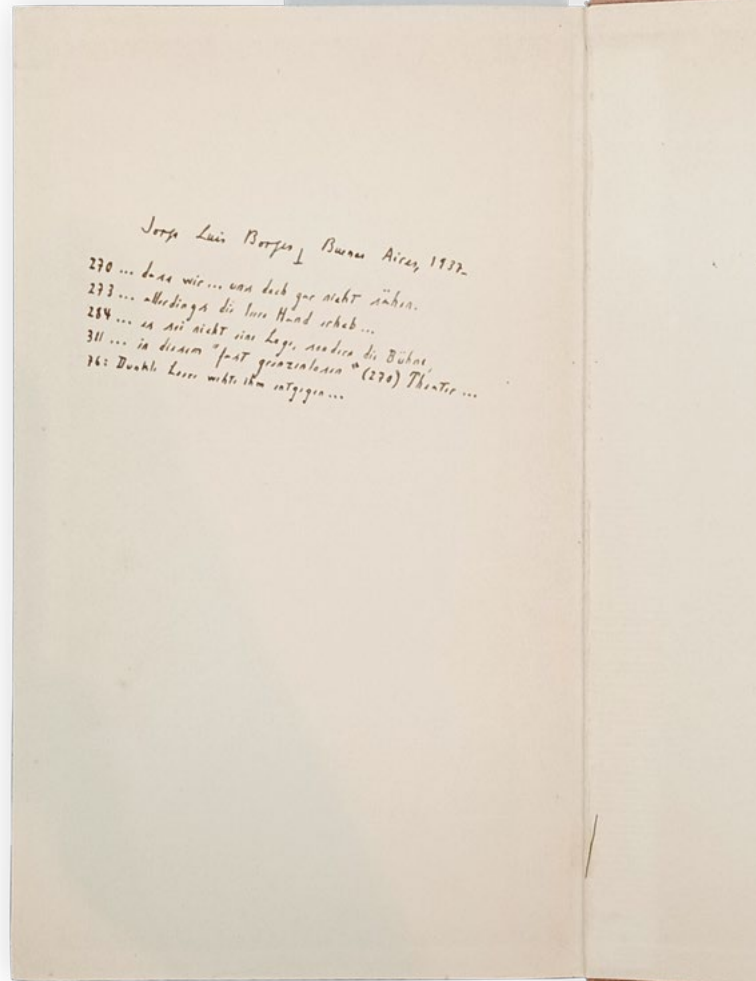 Jorge Luis Borges, Buenos Aires, 1937_
270 ... dass wir ... uns doch gar nicht sähen.
273 ... allerdings die leere Hand erhob ...
284 ... es sei nicht eine Loge, sondern die Bühne,
311 ... in diesem "fast grenzenlosen" (270) Theater ...
76: Dunkle Leere wehte ihm entgegen ...